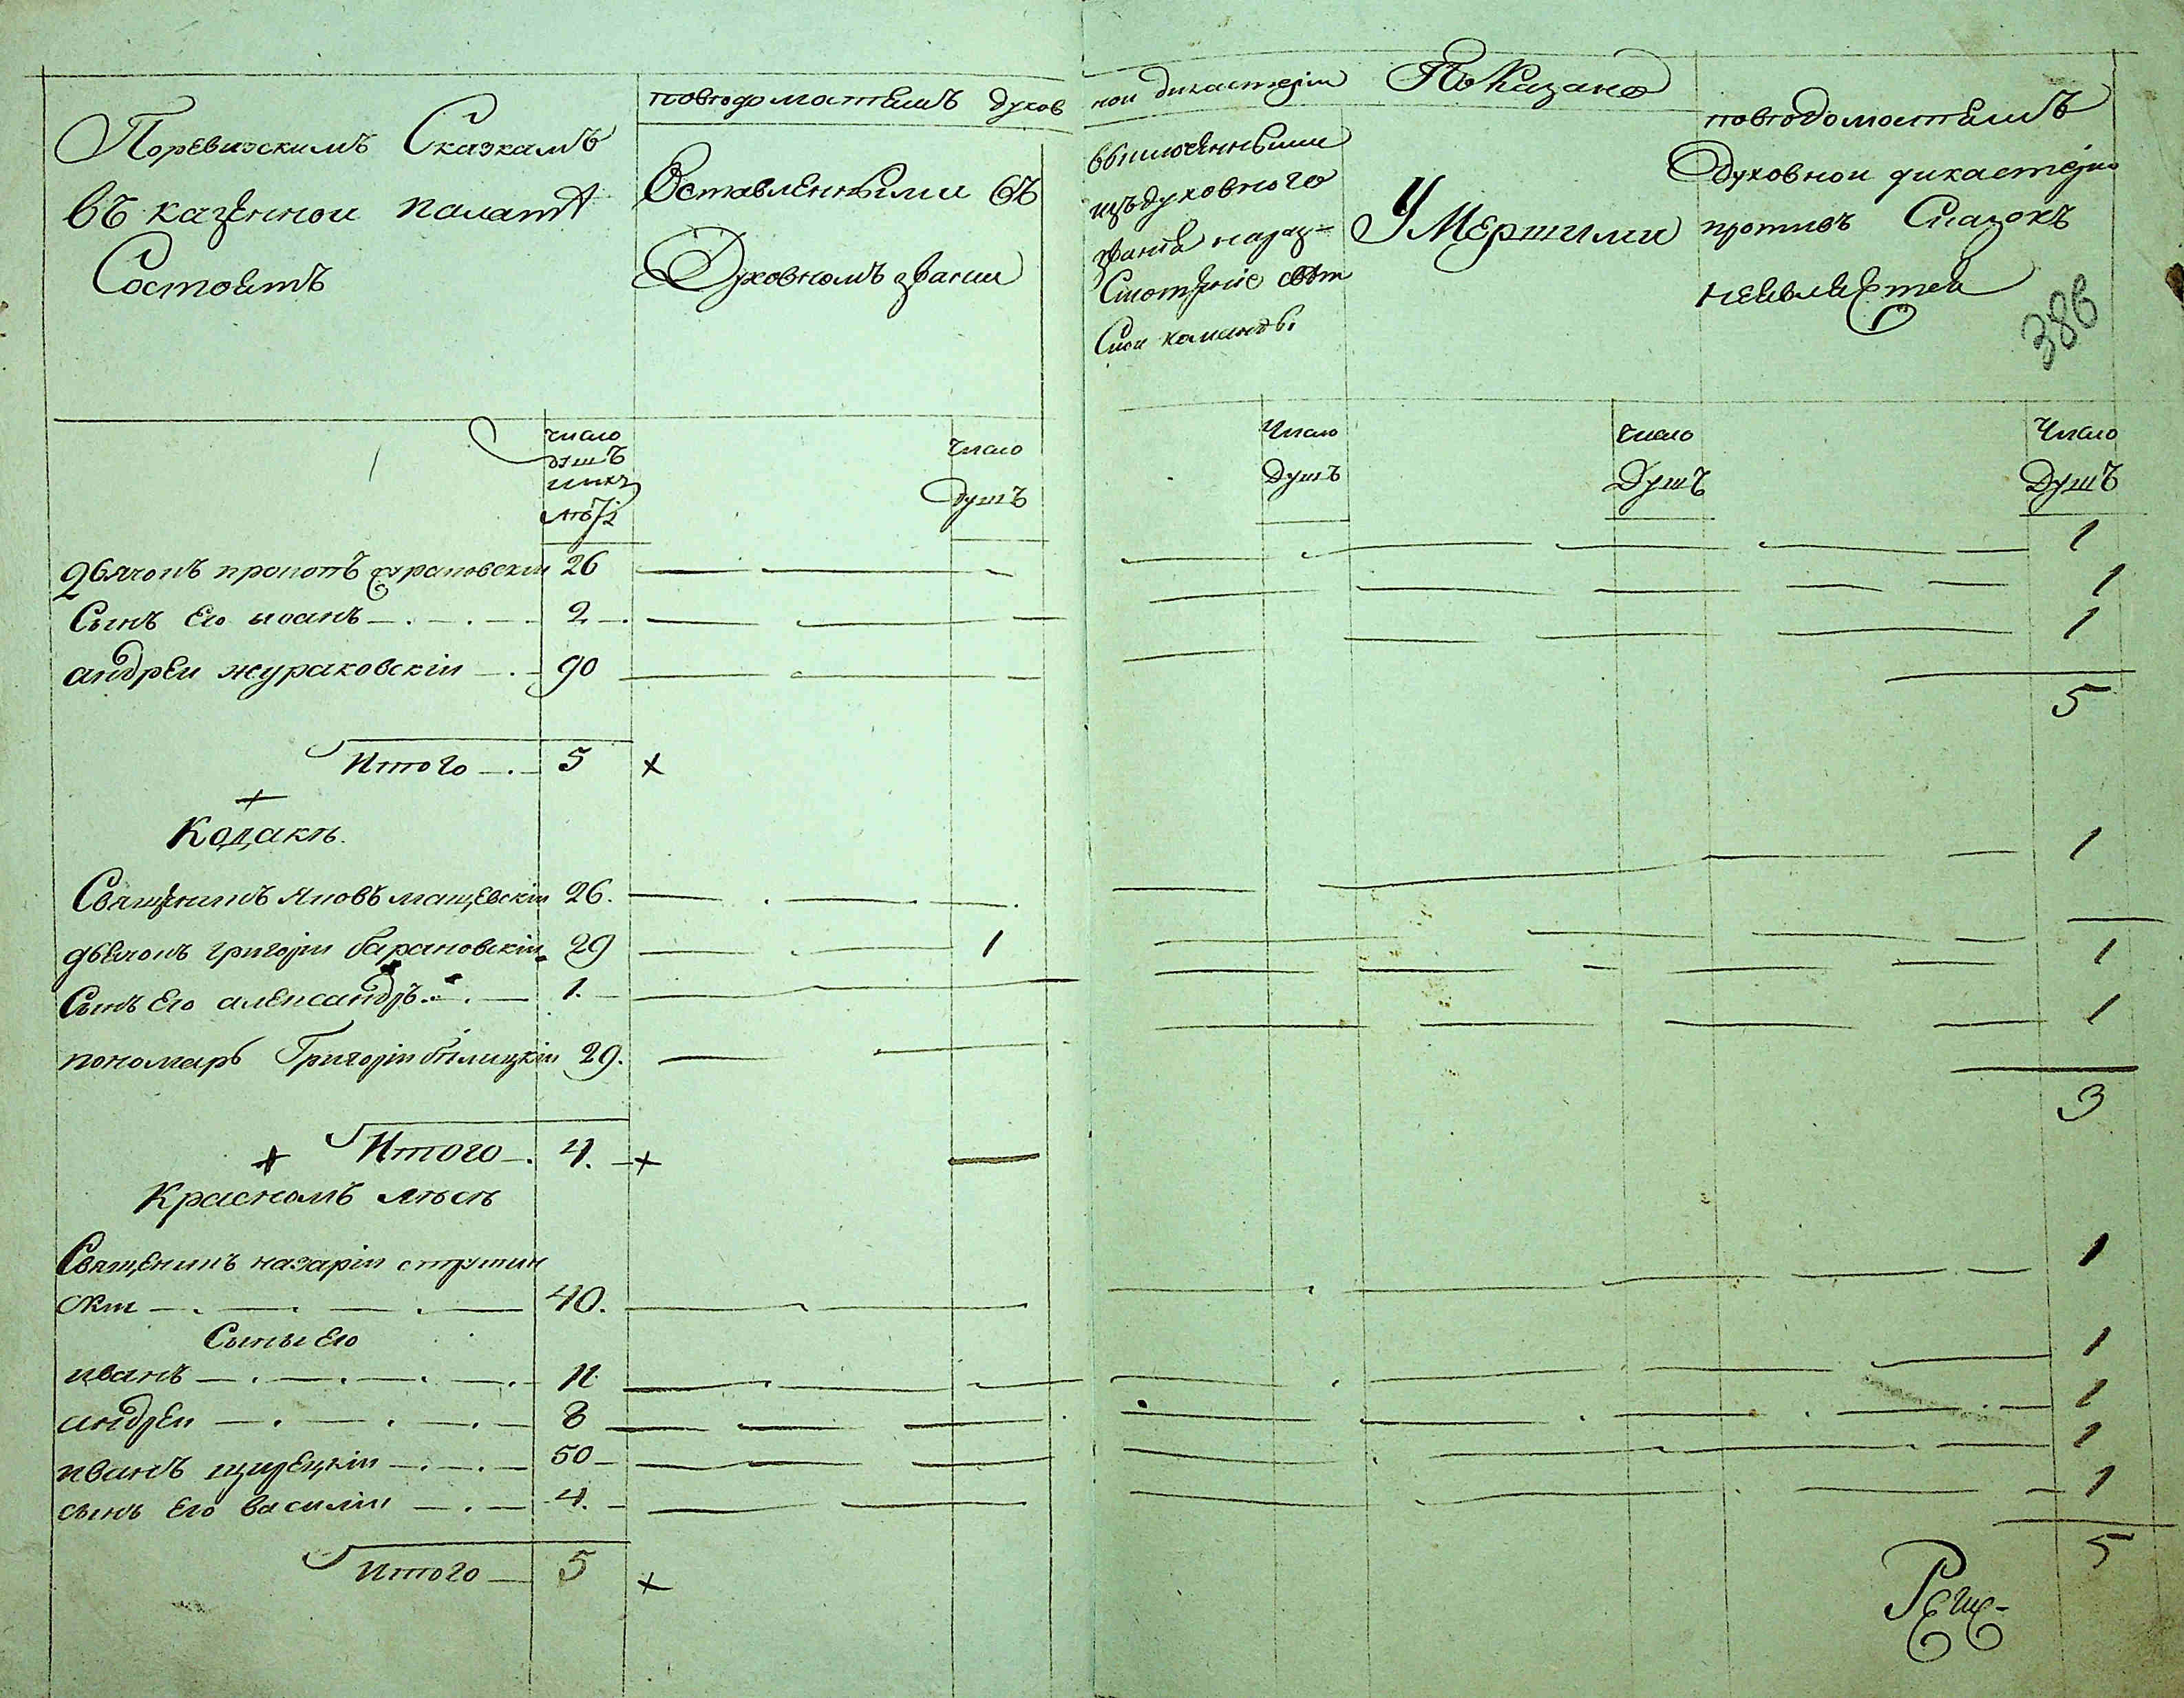 Поревизскимъ Сказкамъ
въ казенной палатѣ
Состоитъ
повѣдомостямъ духов
ной дикастеріи Показано
Оставленными въ
Духовномъ званіи
выключенными
изъ духовного
званія на раз-
Смотреніе свѣт
Ской команды
Умершими
повѣдомостямъ
Духовной дикастеріи
противъ Сказокъ
неявляется
386
число
душъ
ихъ
лѣта
Число
Душъ
Число
Душъ
Число
Душъ
Число
Душъ
дьячокъ прокопъ 26 1
Сынъ Его иоанъ 2 1
андрей жураковскій 90 1
5
Итого 5 ×
Кодакѣ
Священикъ яковъ мащевскій 26. 1
дьячокъ григорій барановскій 29 1
Сынъ Его александръ 1. 1
пономарь Григорій билицкій 29. 1
3
Итого 4. ×
Красномъ лѣсѣ
Священикъ назарій струтин
скій 40. 1
Сыны Его
иванъ 11. 1
андрей 8 1
иванъ щирецкій 50 1
сынъ Его василій 4. 1
5
Итого 5 ×